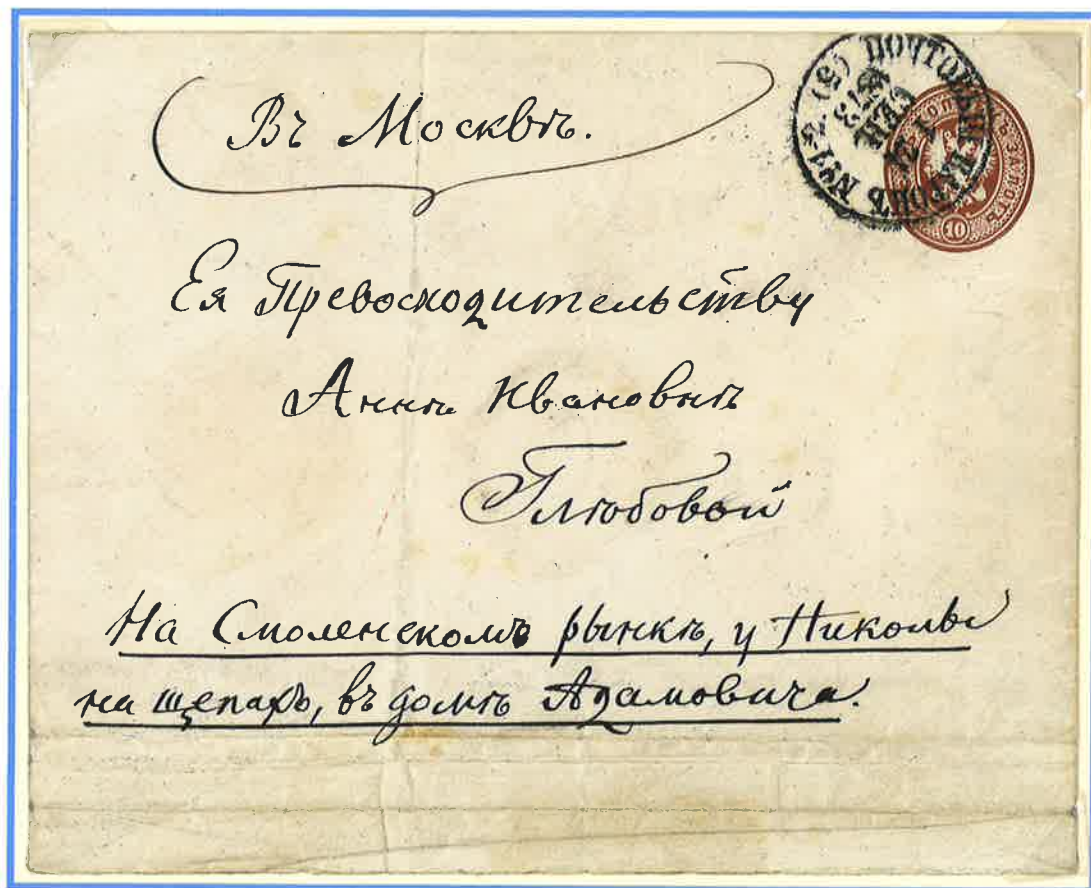 Въ Москвѣ.
Ея Превосходительству
Аннѣ Ивановнѣ
Глюбовой
На Смоленскомъ рынкѣ, у Николы
на щепахъ, въ домѣ Адамовича.
ПОЧТОВЫЙ ВАГОНЪ №1-2 (5)
1873
СЕН.
10